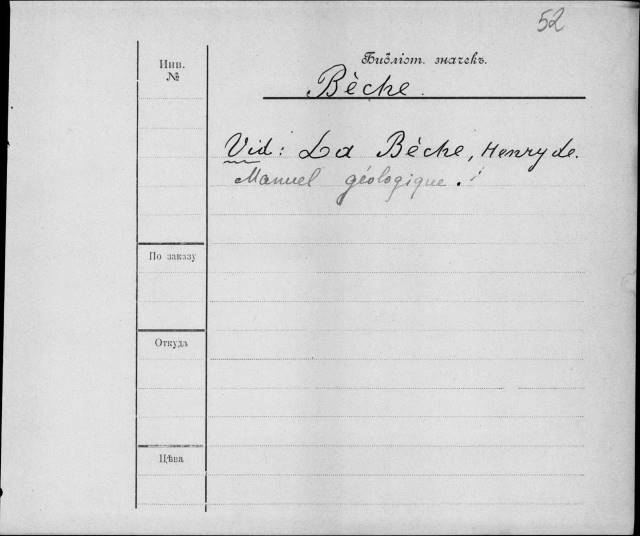 52
Библіот. значекъ.
Инв.
№
Bèche.
Vid: La Bèche, Henry de.
Manuel géologique.
По заказу
Откуда
Цѣна